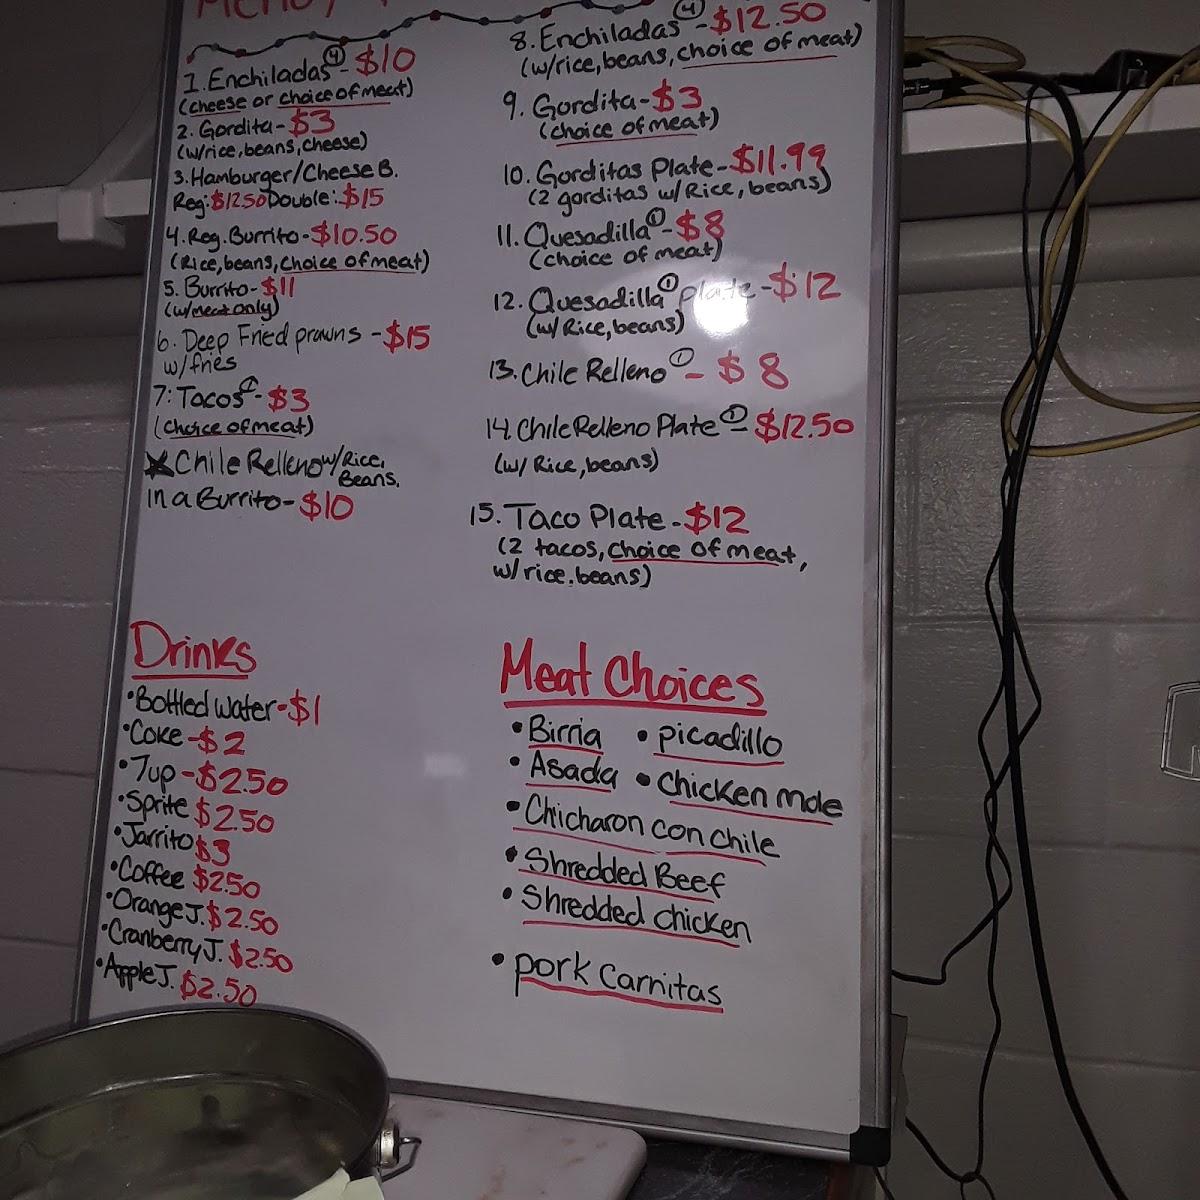 Menu
1. Enchiladas (4) - $10
(cheese or choice of meat)
2. Gordita - $3
(w/rice, beans, cheese)
3. Hamburger/Cheese B.
Reg: $12.50 Double: $15
4. Reg. Burrito - $10.50
(Rice, beans, choice of meat)
5. Burrito - $11
(w/meat only)
6. Deep Fried prawns - $15
w/fries
7: Tacos (1) - $3
(choice of meat)
Chile Relleno w/Rice,
Beans,
in a Burrito - $10
8. Enchiladas (4) - $12.50
(w/rice, beans, choice of meat)
9. Gordita - $3
(choice of meat)
10. Gorditas Plate - $11.99
(2 gorditas w/Rice, beans)
11. Quesadilla (1) - $8
(choice of meat)
12. Quesadilla (1) plate - $12
(w/Rice, beans)
13. Chile Relleno (1) - $8
14. Chile Relleno Plate (1) - $12.50
(w/ Rice, beans)
15. Taco Plate - $12
(2 tacos, choice of meat,
w/rice. beans)
Drinks
• Bottled water - $1
• Coke - $2
• 7up - $2.50
• Sprite $2.50
• Jarrito $3
• Coffee $2.50
• Orange J. $2.50
• Cranberry J. $2.50
• Apple J. $2.50
Meat Choices
• Birria • picadillo
• Asada • Chicken mole
• Chicharon con chile
• Shredded Beef
• Shredded chicken
• pork Carnitas